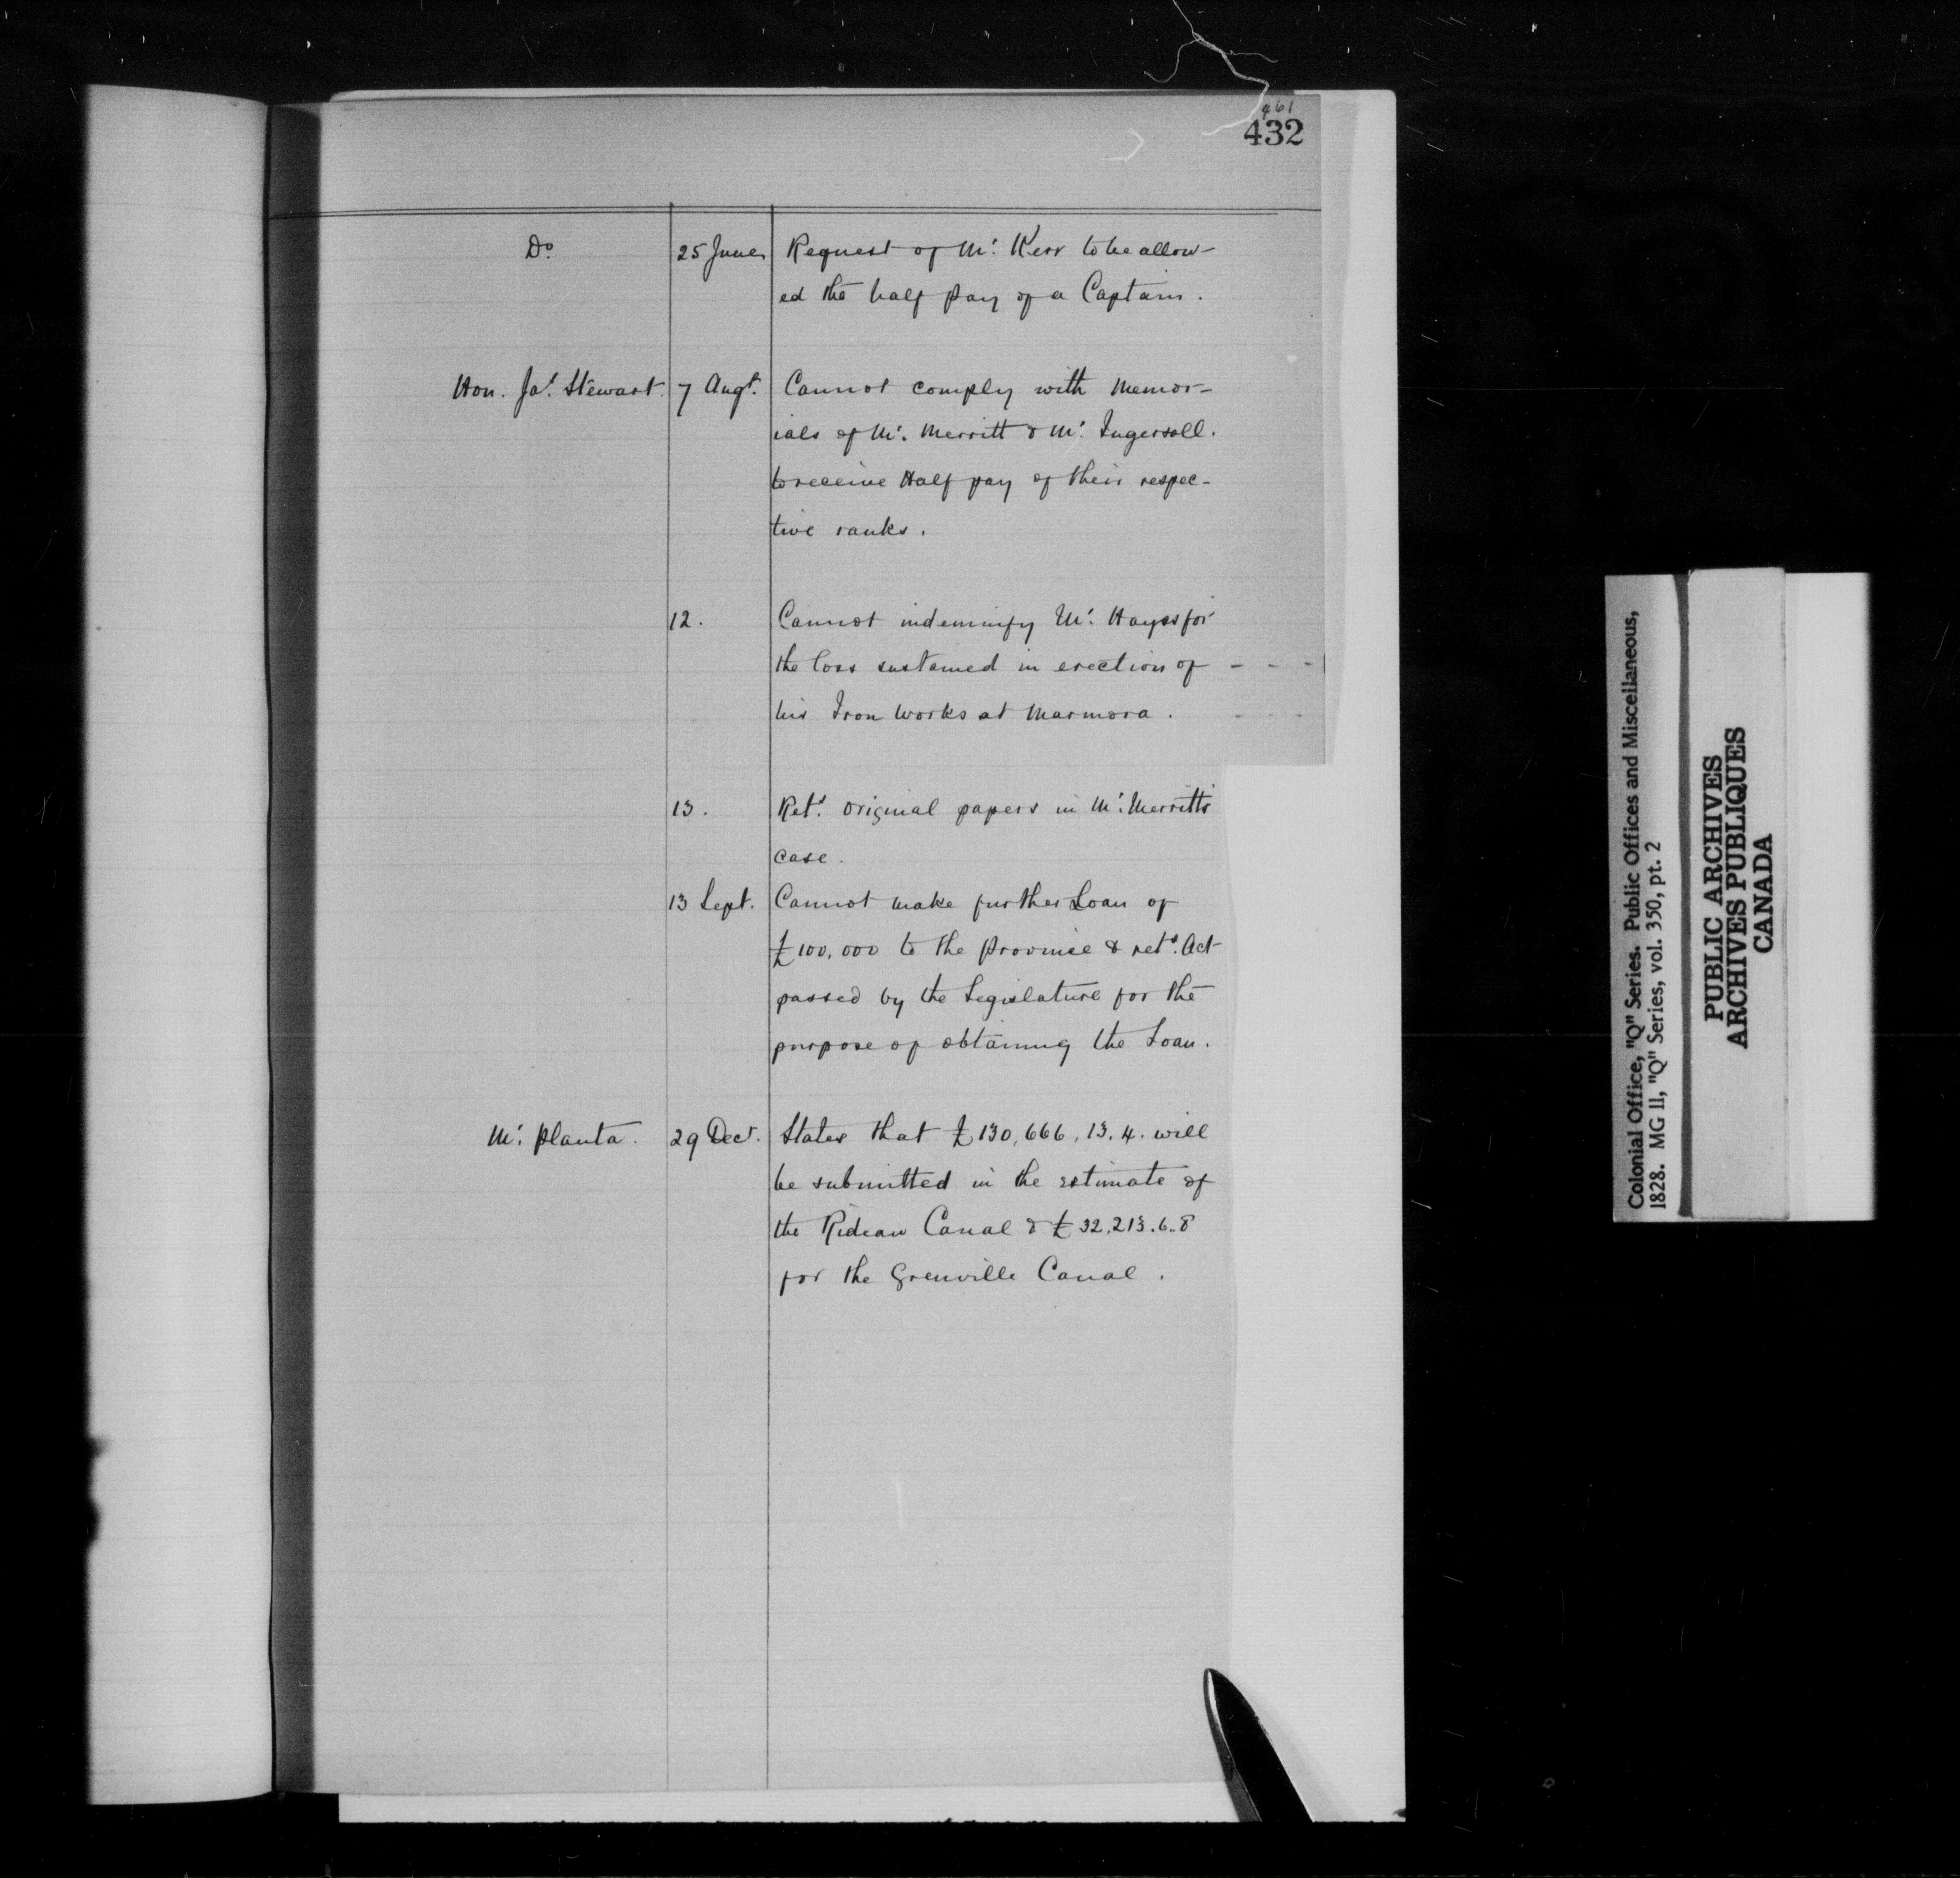 461
432
Do. 25 June Request of Mr. Kerr to be allow-
ed the half pay of a Captain.
Hon. Jas. Stewart. 7 Augt. Cannot comply with Memor-
ials of Mr. Merritt & Mr. Ingersoll.
to receive Half pay of their respec-
tive ranks.
12. Cannot indemnify Mr. Hayes for
the loss sustained in erection of - - -
his Iron Works at Marmora. - - -
13. Rets. original papers in Mr. Merritt's
case.
13 Sept. Cannot make further Loan of
£100,000 to the province & rets. Act
passed by the Legislature for the
purpose of obtaining the Loan.
Mr. Planta. 29 Decr. States that £130,666.13.4. will
be submitted in the estimate of
the Rideau Canal & £32,213.6.8
for the Grenville Canal.
Colonial Office, "Q" Series. Public Offices and Miscellaneous,
1828. MG 11, "Q" Series, vol. 350, pt. 2
PUBLIC ARCHIVES
ARCHIVES PUBLIQUES
CANADA